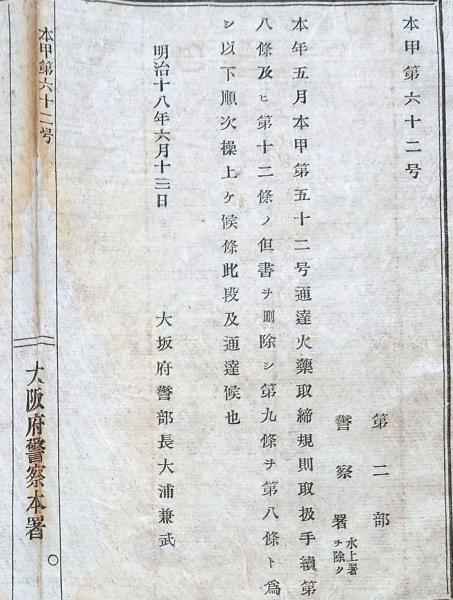 本甲第六十二号
第二部
警察署 水上署ヲ除ク
本年五月本甲第五十二号通達火藥取締規則取扱手續第
八條及ヒ第十二條ノ但書ヲ刪除シ第九條ヲ第八條ト爲
シ以下順次操上ケ候條此段及通達候也
明治十八年六月十三日
大坂府警部長大浦兼武
本甲第六十二号
大阪府警察本署